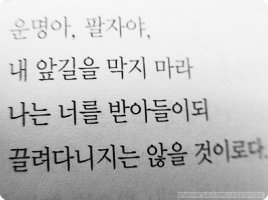 운명아, 팔자야,
내 앞길을 막지 마라
나는 너를 받아들이되
끌려다니지는 않을 것이로다.